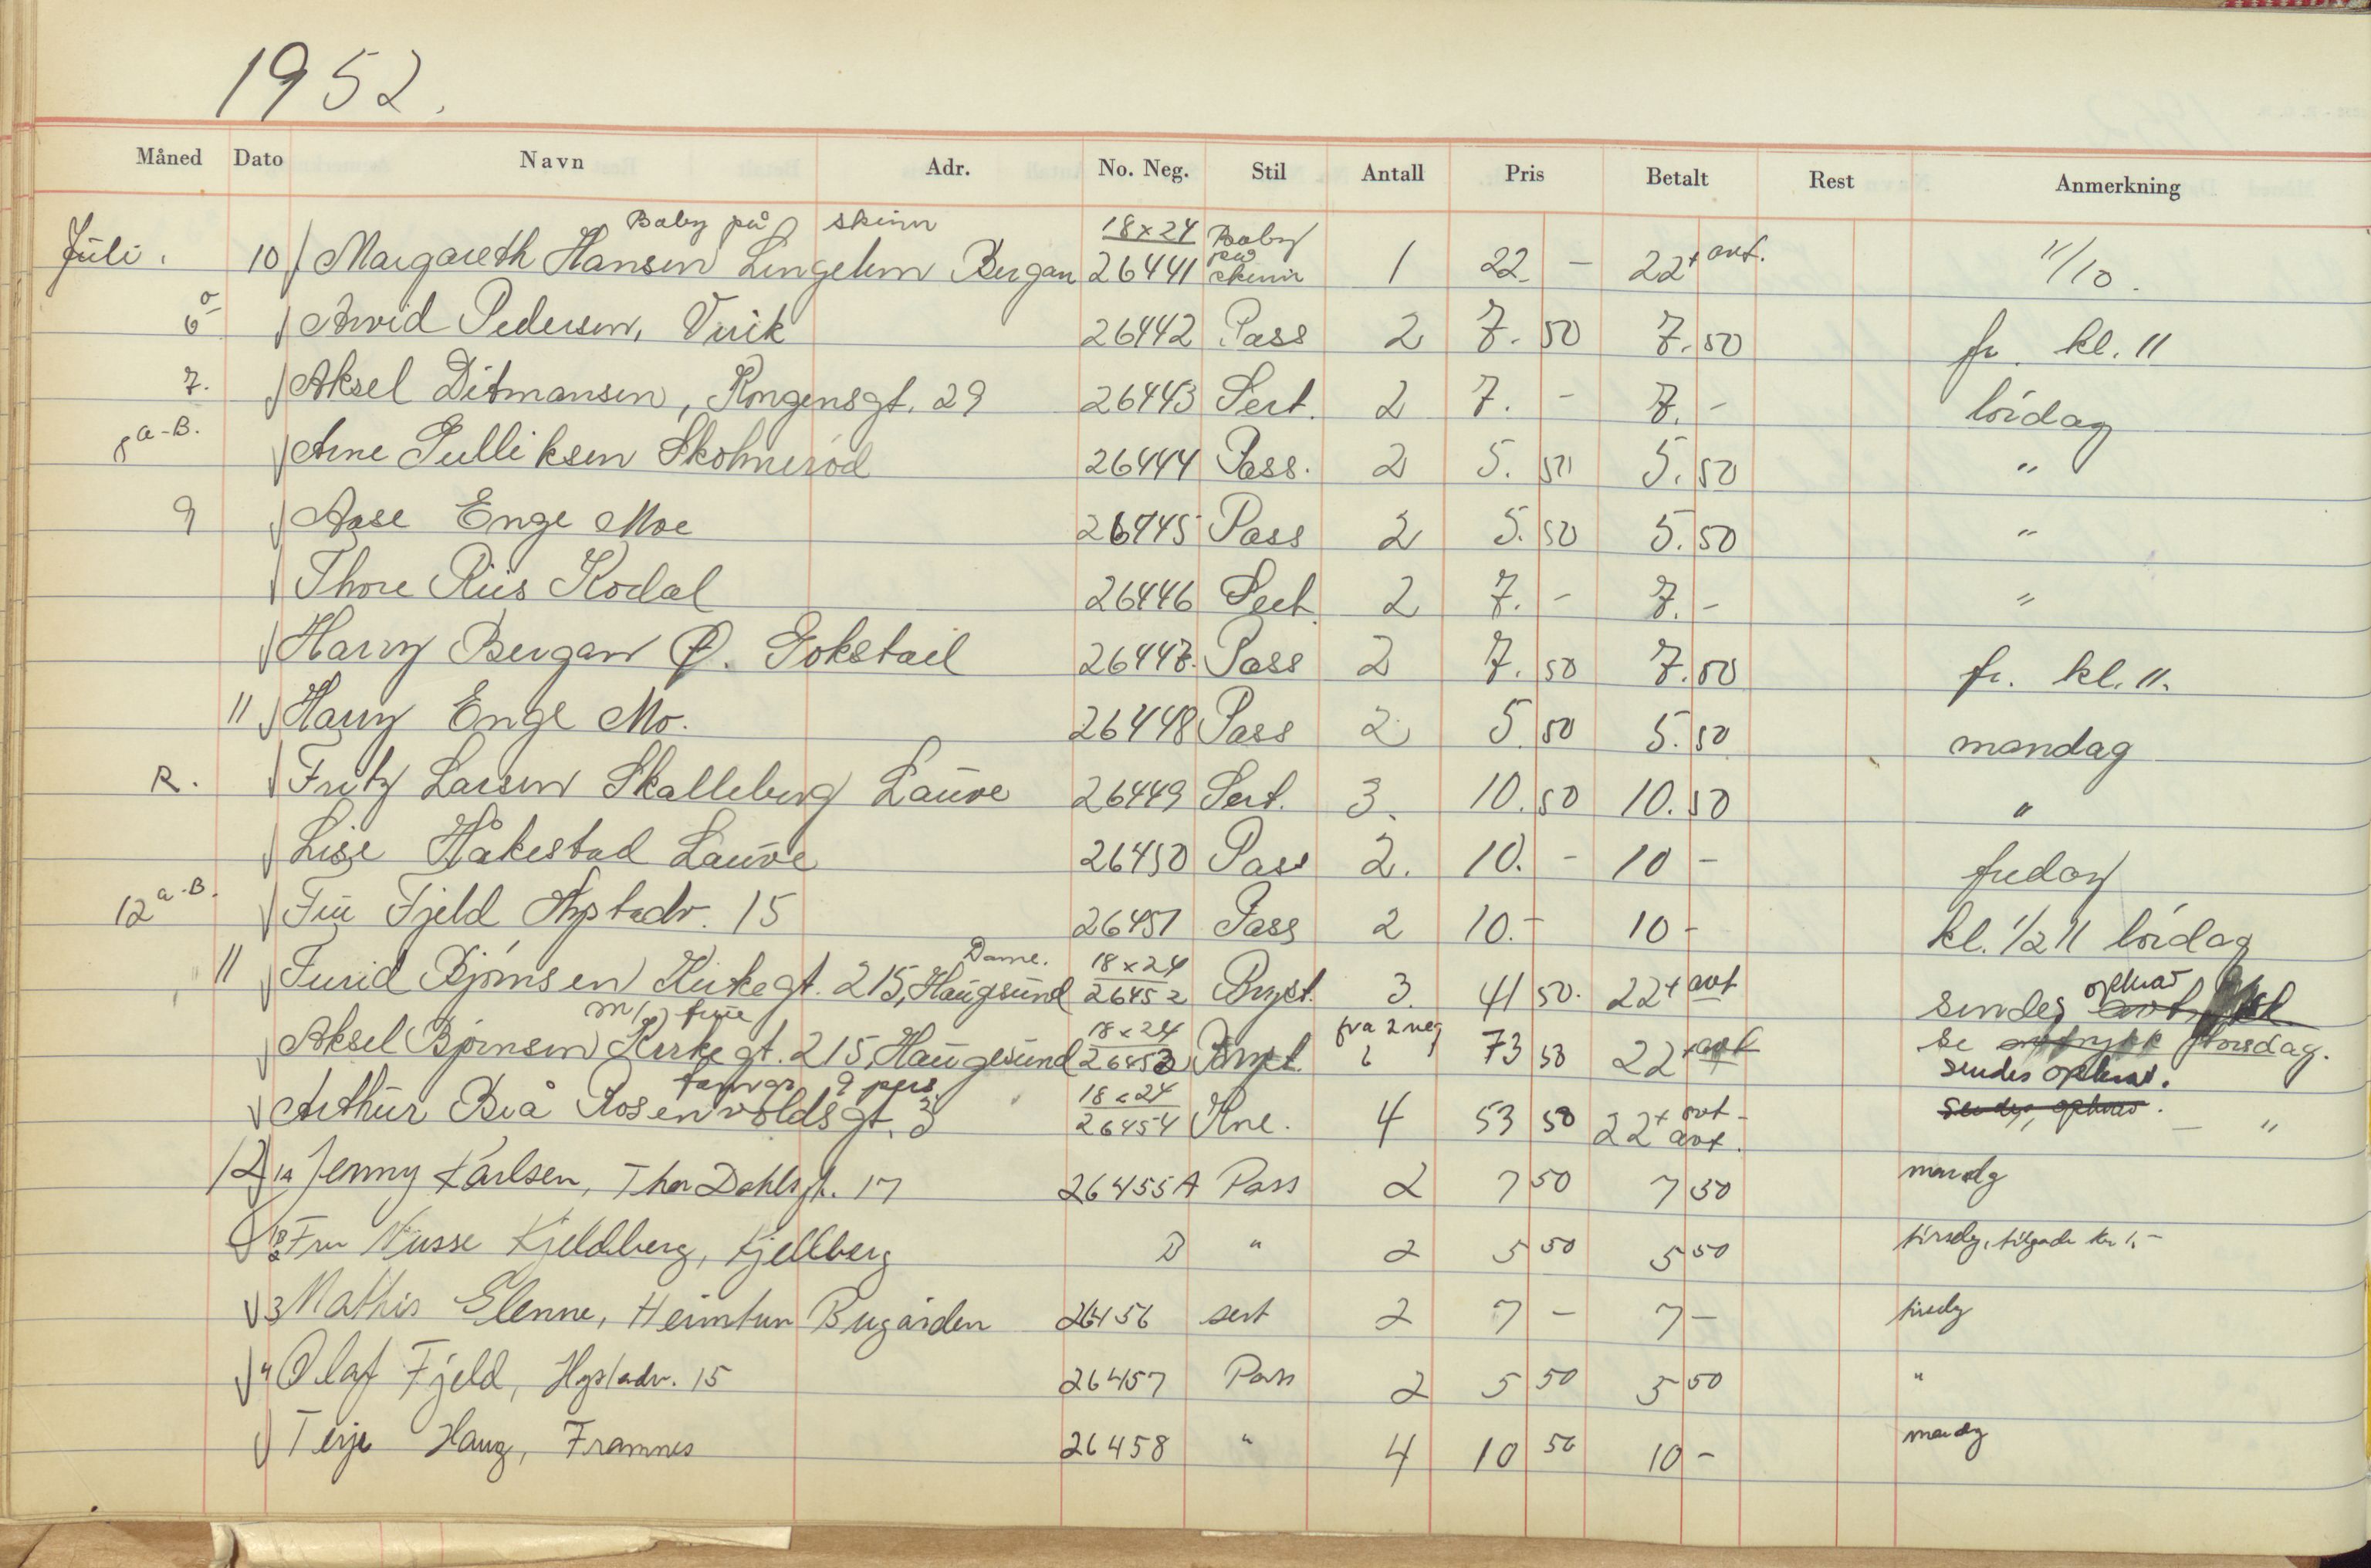 1952.
Måned Dato Navn Adr. No. Neg. Stil Antall Pris Betalt Rest Anmerkning
Baby på skinn 18x24 Baby på skinn
Juli. 10 Margareth Hansen Lingelem Bergan 26441 1 22 - 22+ avt. 11/10.
6 Arvid Pedersen, Virik 26442 Pass 2 7. 50 7. 50 fr. kl. 11
7. Aksel Ditmansen, Kongensgt. 29 26443 Sert. 2 7. - 7. - lördag
8 a-B. Arne Gulliksen Skolmerød 26444 Pass. 2 5. 50 5. 50 "
9 Aase Enge Moe 26445 Pass 2 5. 50 5. 50 "
Thore Riis Kodal 26446 Sert. 2 7. - 7. - "
Harry Bergan Ø. Gokstad 26447. Pass 2 7. 50 7. 50 fr. kl. 11.
11 Harry Enge Mo. 26448 Pass 2 5. 50 5. 50 mandag
R. Fritz Larsen Skalleberg Lauve 26449 Sert. 3. 10. 50 10. 50 "
Lise Håkestad Lauve 26450 Pass 2. 10. - 10 - fredag
12 a-B. Fru Fjeld Hystadv. 15 26451 Pass 2 10. - 10 - kl. 1/2 11 lördag
Dame. 18x24
11 Turid Bjørnsen Kirkegt. 215, Haugsund 26452 Bryst. 3. 41 50. 22+ avt sendes opkrav
m/ frue 18x24 fra 2 neg
Aksel Bjørnsen Kirkegt. 215, Haugesund 26453 Bryst. 73 50 22+ avt se avtrykk torsdag.
sendes opkrav.
9 pers. 18x24
Arthur Brå Rosenvoldsgt. 3 26454 Kne. 4 53 50 22+ avt. sendes, opkrav. - "
12 1A Jenny Karlsen, Thor Dahlsgt. 17 26455A Pass 2 7 50 7 50 mandg
Fru Nusse Kjeldberg, Kjellberg B " 2 5 50 5 50 tirsdg, tilgode kr 1.-
3 Mathis Glenne, Heimtun Bugården 26456 sert 2 7 - 7 - tirsdg
4 Olaf Fjeld, Hystadv. 15 26457 Pass 2 5 50 5 50 "
Terje Haug, Framnes 26458 " 4 10 50 10 - mandg